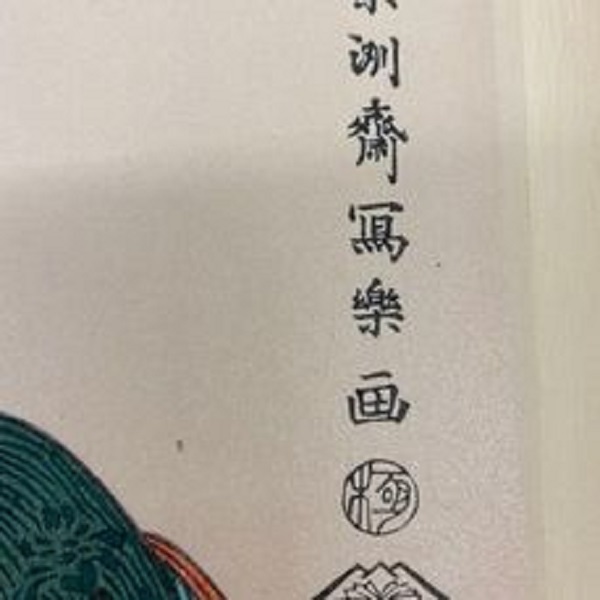 洲齋寫樂画
極